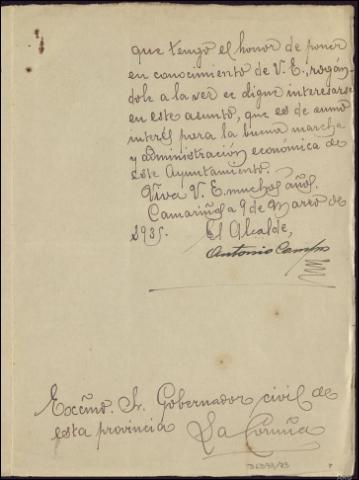 que tengo el honor de poner
en conocimiento de V. E., rogán
dole a la vez se digne interesarse
en este asunto, que es de sumo
interés para la buena marcha
y administración económica de
este Ayuntamiento.
Viva V. E. muchos años.
Camariñas 9 de Marzo de
1935.
El Alcalde,
Antonio Campos
Excmo. Sr. Gobernador civil de
esta provincia La Coruña